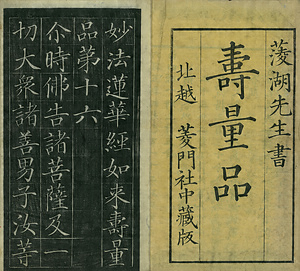 菱湖先生書
壽量品
北越 菱門社中藏版
妙法蓮華經如來壽量
品第十六
尒時佛告諸菩薩及一
切大衆諸善男子汝等